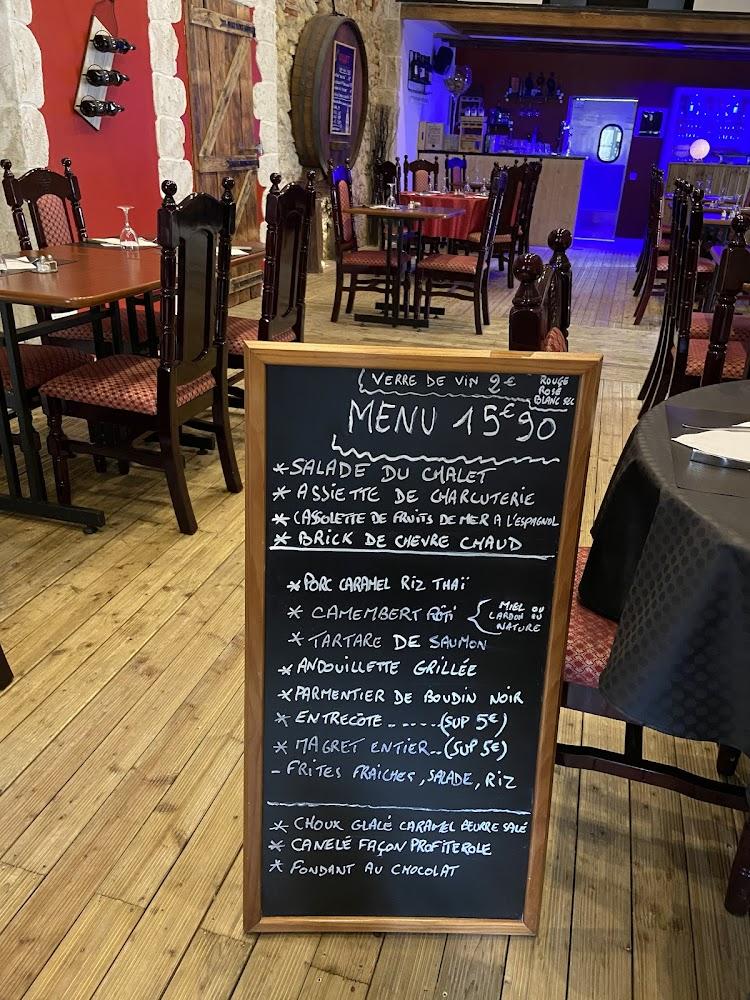 VERRE DE VIN 2€
ROUGE
ROSÉ
BLANC SEC
MENU 15€90
*SALADE DU CHALET
* ASSIETTE DE CHARCUTERIE
* CASSOLETTE DE FRUITS DE MER A L'ESPAGNOL
* BRICK DE CHEVRE CHAUD
*PORC CARAMEL RIZ THAÏ
* CAMEMBERT RÔTI
MIEL OU
LARDON OU
NATURE
* TARTARE DE SAUMON
* ANDOUILLETTE GRILLÉE
*PARMENTIER DE BOUDIN NOIR
* ENTRECÔTE ------(SUP 5€)
* MAGRET ENTIER--(SUP 5€)
- FRITES FRAICHES, SALADE, RIZ
* CHOUX GLACÉ CARAMEL BEURRE SALÉ
* CANELÉ FAÇON PROFITEROLE
* FONDANT AU CHOCOLAT